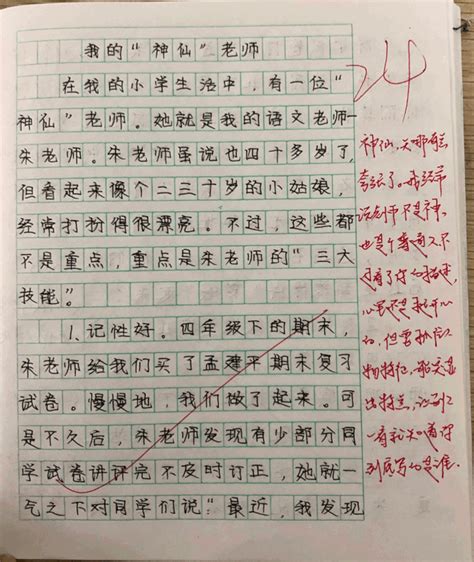 我的“神仙”老师
在我的小学生活中，有一位“
神仙”老师。她就是我的语文老师一
朱老师。朱老师虽说也四十多岁了，
但看起来像个二三十岁的小姑娘，
经常打扮得很漂亮。不过，这些都
不是重点，重点是朱老师的“三大
技能”。
1、记性好。四年级下的期末，
朱老师给我们买了孟建平期末复习
试卷。慢慢地，我们做了起来。可
是不久后，朱老师发现有少部分同
学试卷讲评完不及时订正，她就一
气之下对同学们说“最近，我发现
24
神仙，
夸张了。我经常
说老师不是神，
也是个普通人，不
过看了你的描述，
心里还是挺开心
的，但要抓住人
物特征，
出特点，让别人
一看就知道你
到底写的是谁。